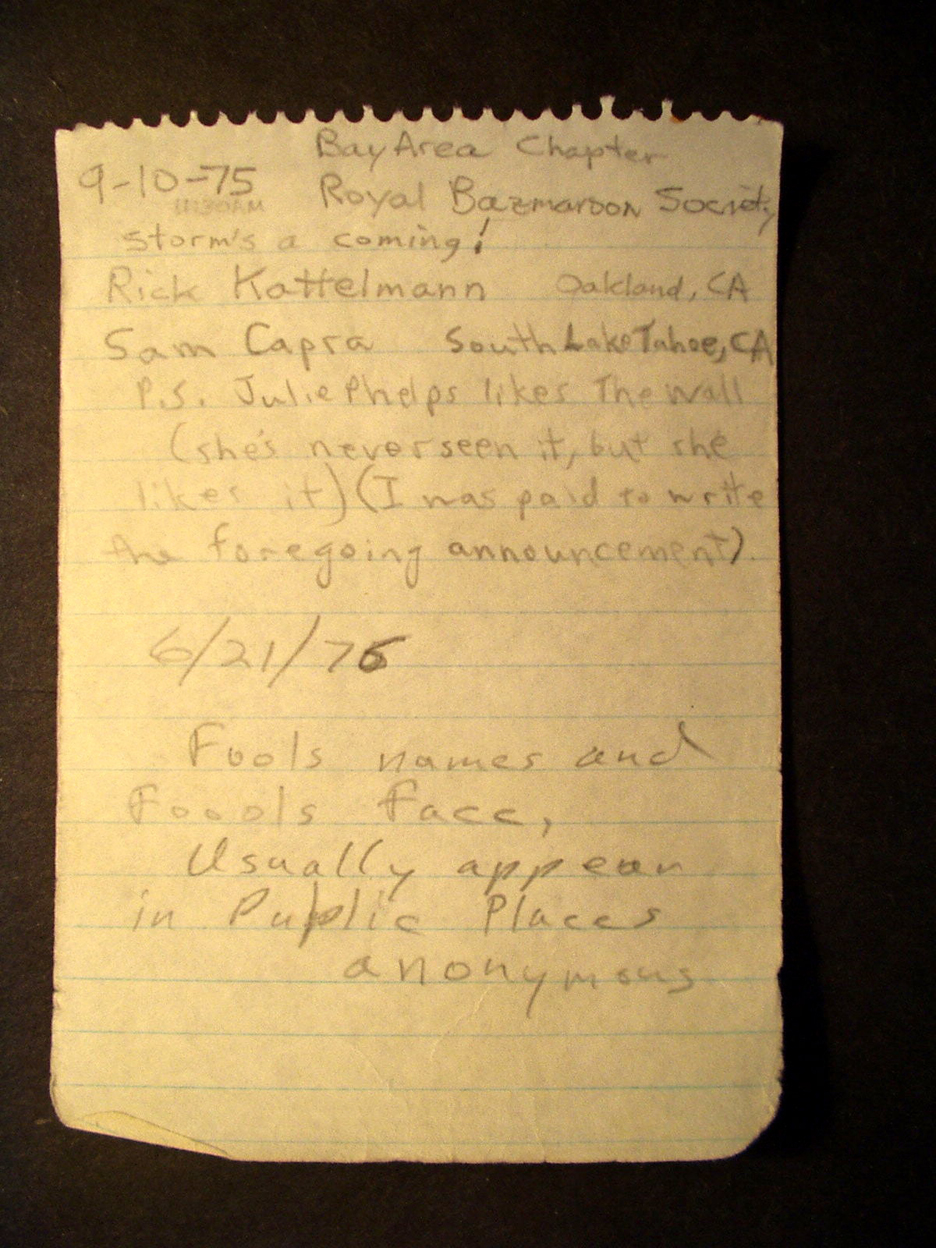 Bay Area Chapter
9-10-75 Royal Bazmaroon Society
11:30AM
storm's a coming!
Rick Kattelmann Oakland, CA
Sam Capra South Lake Tahoe, CA
P.S. Julie Phelps likes The Wall
(she's never seen it, but she
likes it) (I was paid to write
the foregoing announcement).
6/21/76
Fools names and
Foools face,
Usually appear
in Public Places
anonymous